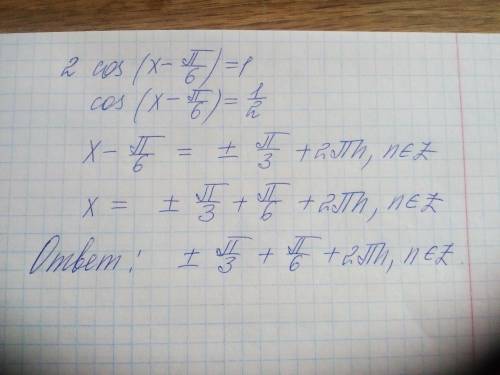 2 cos(x − π/6) = 1
cos(x − π/6) = 1/2
x − π/6 = ± π/3 + 2πn, n∈Z
x = ± π/3 + π/6 + 2πn, n∈Z
Ответ: ± π/3 + π/6 + 2πn, n∈Z.